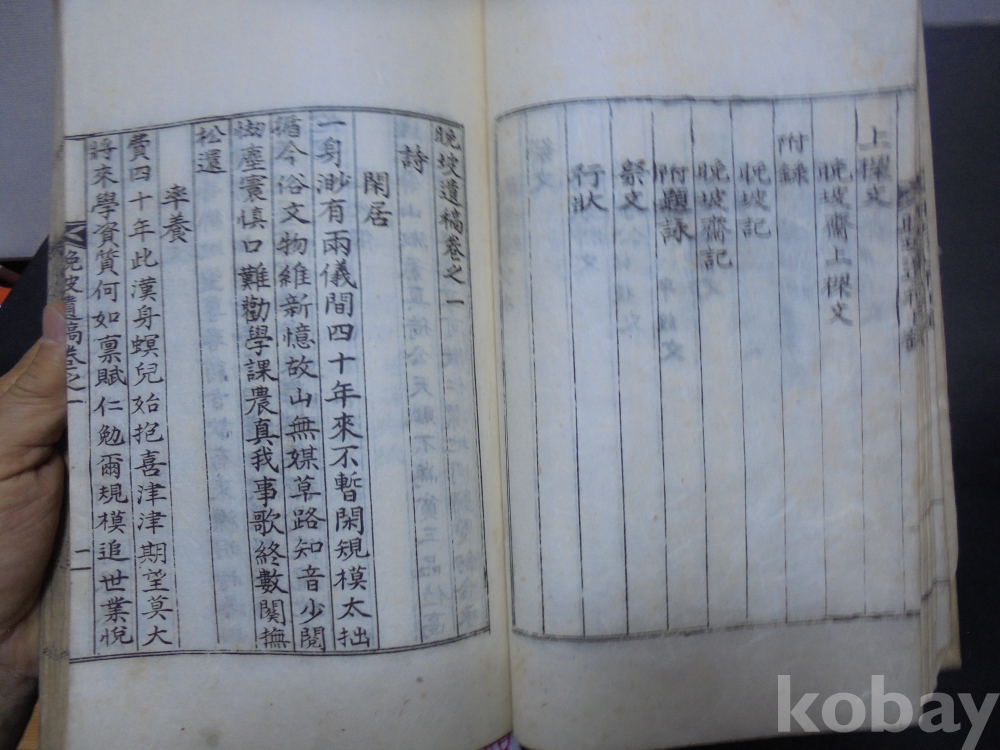 上樑文
晩坡齋上樑文
附錄
晩坡記
晩坡齋記
附題詠
祭文
行狀
晩坡遺稿卷之一
詩
閑居
一身渺有兩儀間四十年來不暫閑規模太拙
循今俗文物維新憶故山無媒草路知音少閱
塵寰愼口難勸學課農真我事歌終數闋撫
松還
率養
四十年此漢身螟兒始抱喜津津期望莫大
將來學資質何如禀賦仁勉爾規模追世業悅
晩坡遺稿卷之一
kobay